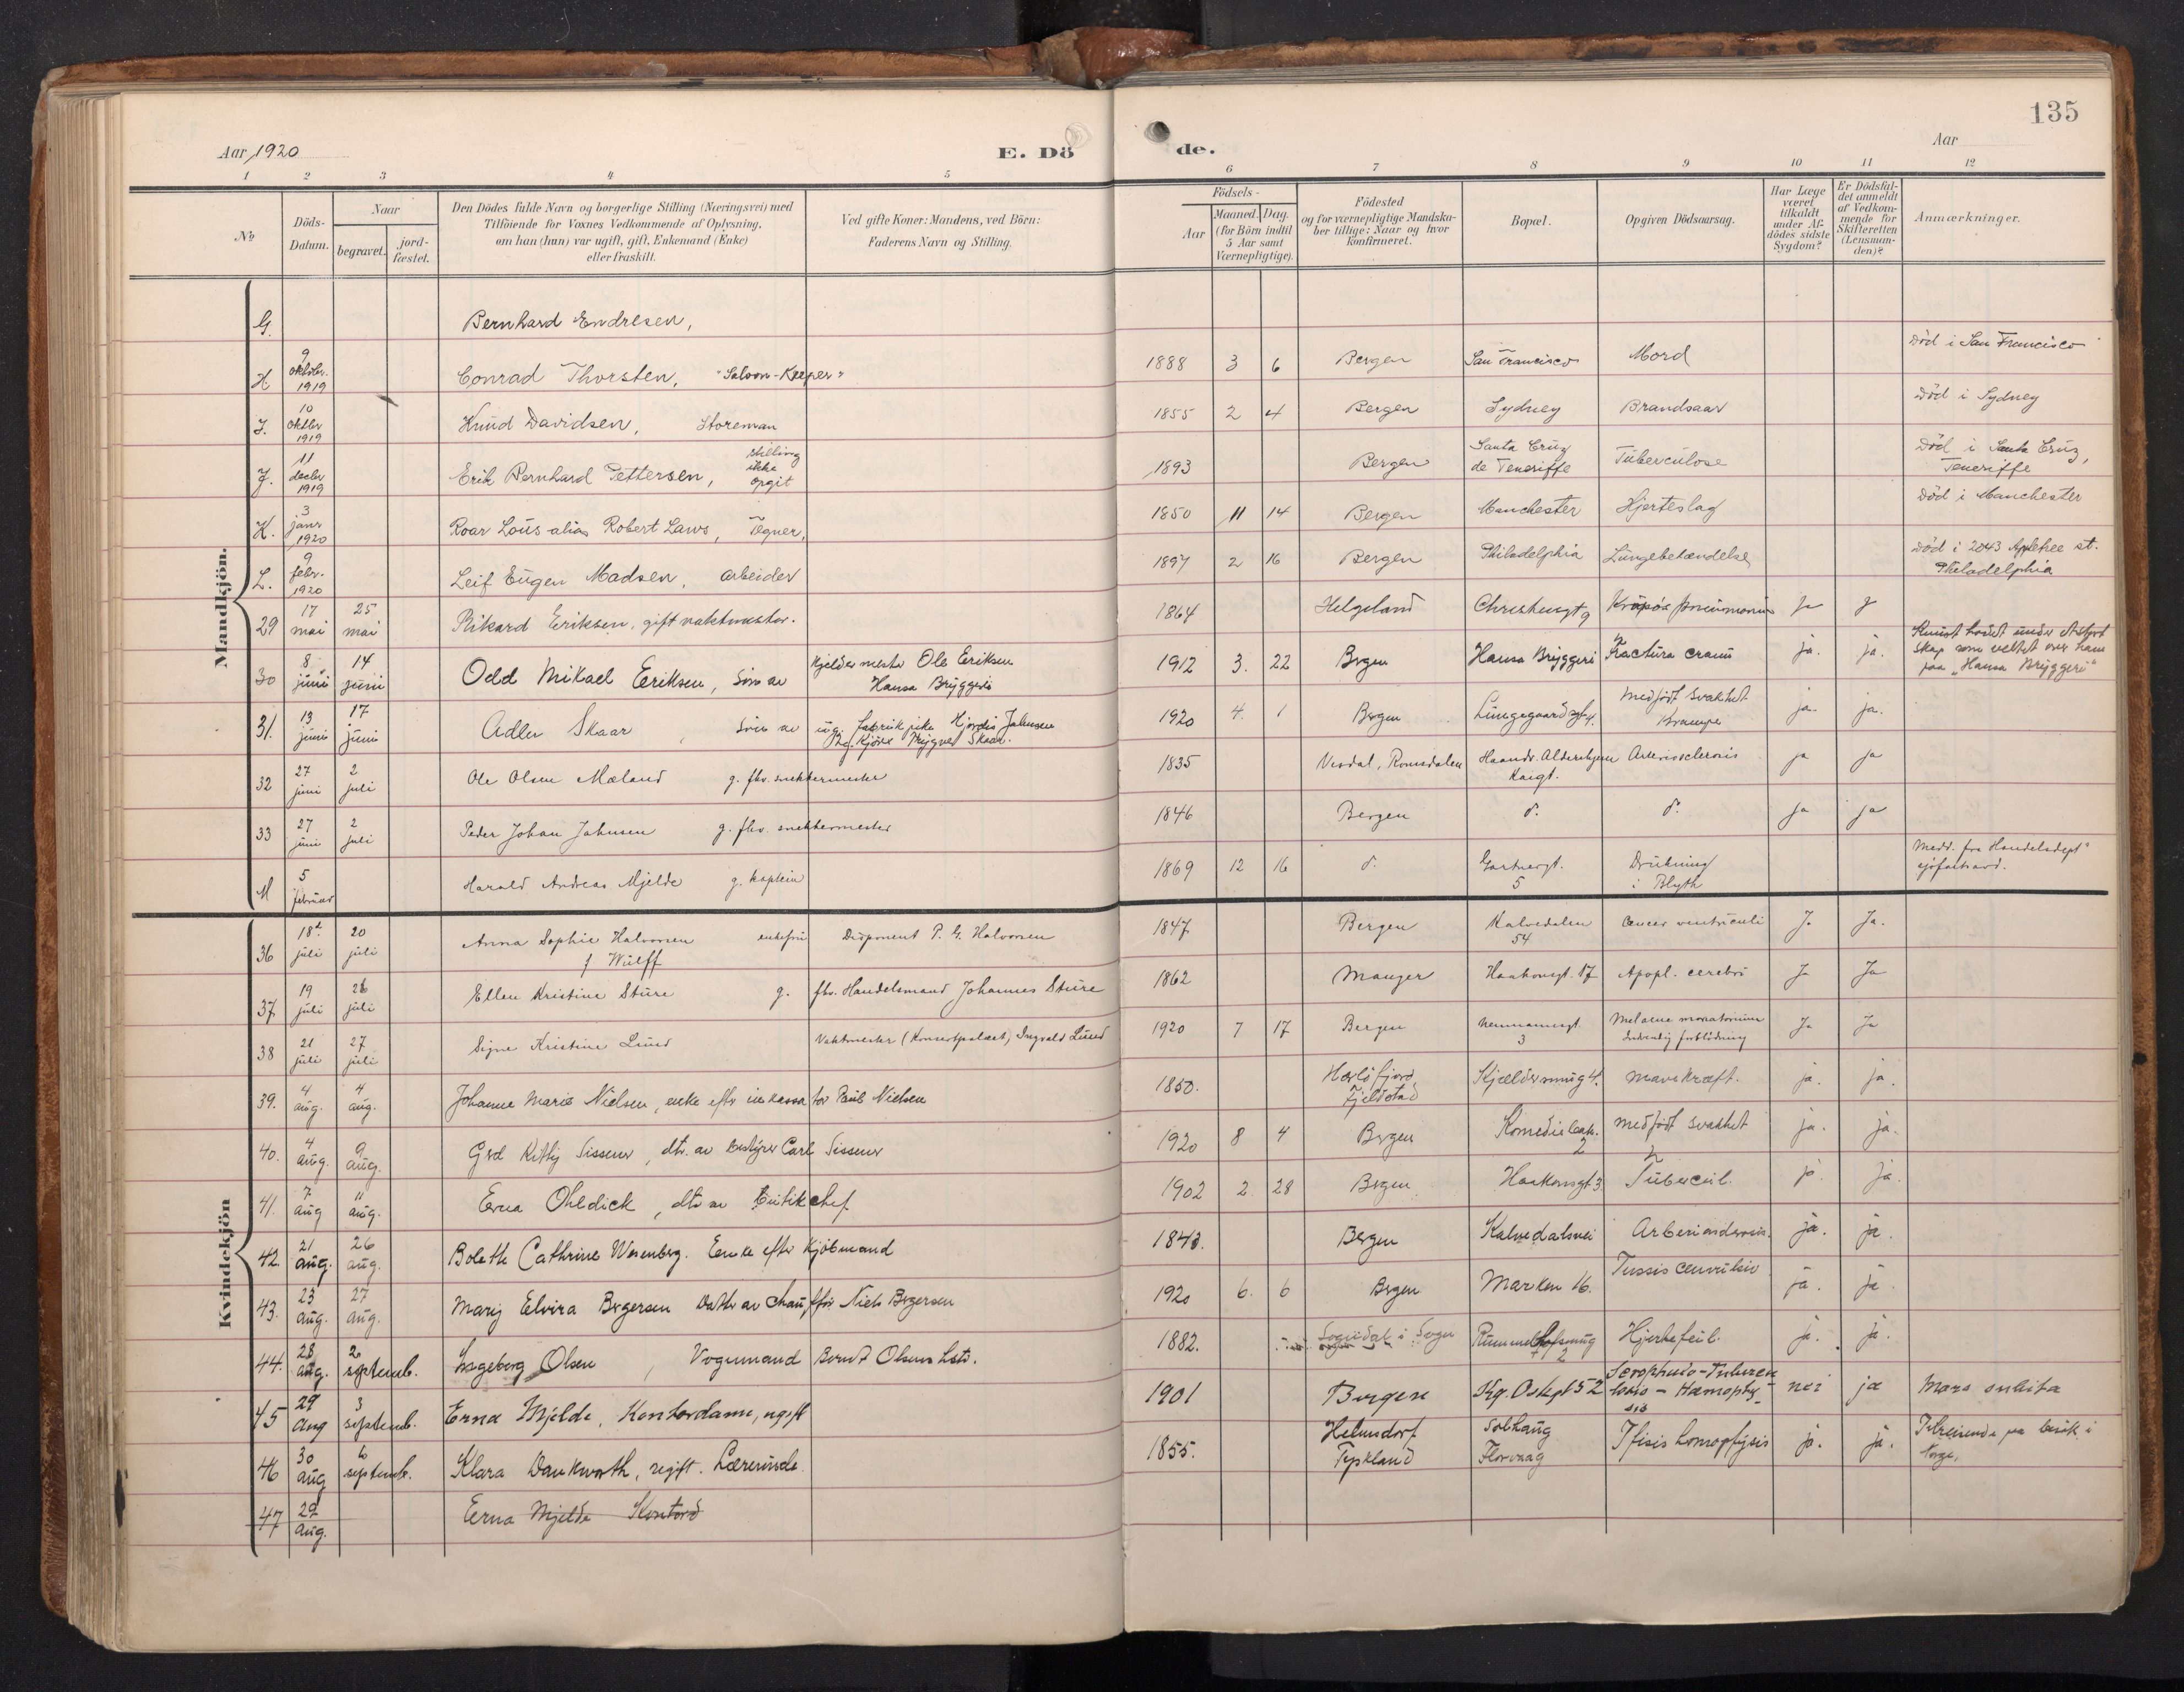 135
Aar 1920
E. Dö
de.
Aar
1 2 3 4 5 6 7 8 9 10 11 12
No
Döds-Datum.
Naar
begravet.
jord-fæstet.
Den Dödes fulde Navn og borgerlige Stilling (Næringsvei) med
Tilföiende for Voxnes Vedkommende af Oplysning,
om han (hun) var ugift, gift, Enkemand (Enke)
eller fraskilt.
Ved gifte Koner: Mandens, ved Börn:
Faderens Navn og Stilling.
Födsels-
Aar
Maaned. Dag.
(for Börn indtil
5 Aar samt
Værnepligtige).
Födested
og for værnepligtige Mandska-
ber tillige: Naar og hvor
konfirmeret.
Bopæl.
Opgiven Dödsaarsag.
Har Læge
været
tilkaldt
under Af-
dödes sidste
Sygdom?
Er Dödsfal-
det anmeldt
af Vedkom-
mende for
Skifteretten
(Lensman-
den)?
Anmærkninger.
Mandkjön.
G. Bernhard Endresen,
H 9 oktober 1919 Conrad Thorsten, "Saloon-Keeper" 1888 3 6 Bergen San Francisco Mord Död i San Francisco
I. 10 oktbr 1919 Knud Davidsen, Storeman 1855 2 4 Bergen Sydney Brandsaar Död i Sydney
J. 11 decbr 1919 Erik Bernhard Pettersen, stilling ikke opgit 1893 Bergen Santa Cruz de Teneriffe Tuberculose Död i Santa Cruz, Teneriffe
K. 3 janr 1920 Roar Lous alias Robert Laws, Tegner, 1850 11 14 Bergen Manchester Hjerteslag Död i Manchester
L. 9 febr. 1920 Leif Eugen Madsen, arbeider 1897 2 16 Bergen Philadelphia Lungebetændelse Död i 2043 Appletree st. Philadelphia
29 17 mai 25 mai Rikard Eriksen, gift vaktmester. 1864 Helgeland Kristensgt 9 Krupøs pneumonia
30 8 juni 14 juni Odd Mikael Eriksen, sön av Kjeldermester Ole Eriksen Hansa Bryggeri 1912 3. 22 Bergen Hansa Bryggeri Fractura cranii ja. ja. Knust hodet under et stort skap som veltet over ham paa "Hansa Bryggeri"
31. 13 juni 17 juni Adler Skaar, sön av ug. fabrikpike Hjørdis Johnsen Trygve Skaar. 1920 4. 1 Bergen Lungegaardsgt 4. Medfödt svakhet Krampe ja. ja.
32 27 juni 2 juli Ole Olsen Mæland g. fhv. snekkermester 1835 Vesdal, Romsdalen Haandv. Aldershjem Kaigt. Arteriosclerosis ja ja
33 27 juni 2 juli Peder Johan Johnsen g. fhv. snekkermester 1846 Bergen d. d. ja ja
M 5 februar Harald Andreas Mjelde g. kaptein 1869 12 16 d. Gartnergt. 5 Drukning i Blyth Medd. fra Handelsdept
Kvindekjön
36 18de juli 20 juli Anna Sophie Halvorsen f Wulff enkefru Disponent P. G. Halvorsen 1847 Bergen Kalvedalen 54 Cancer ventriculi J. Ja.
37 19 juli 26 juli Ellen Kristine Sture g. fhv. Handelsmand Johannes Sture 1862 Manger Haakonsgt. 17 Apopl. cerebri J Ja
38 21 juli 27 juli Signe Kristine Lund Vaktmester (Konsertpalæet) Ingvald Lund 1920 7 17 Bergen Neumannsgt. 3 Melaena neonatorum Indvendig forblödning Ja Ja
39. 4 aug. 4 aug. Johanne Marie Nielsen, enke eftr inkassator Paul Nielsen 1850. Fjeldstad Kjældersmug 4. Mavekræft. ja. ja.
40. 4 aug. 9 aug. Gerd Kitty Sissener, dtr. av bestyrer Carl Sissener 1920 8 4 Bergen Komediebak. 2 medfödt svakhet ja. ja.
41. 7 aug 11 aug. Erna Ohldick, dtr av Butikchef 1902 2. 28 Bergen Haakonsgt 3 Tubercul. ja. ja.
42. 21 aug. 26 aug. Bolette Cathrine Wesenberg. Enke efter Kjöbmand 1843. Bergen Kalvedalsvei ja. ja.
43. 23 aug. 27 aug. Mary Elvira Birgersen Datter av chaufför Niels Birgersen 1920 6. 6 Bergen Marken 16. Tussis convulsiv ja. ja.
44. 28 aug. 2 septemb. Ingeborg Olsen, Vognmand Bernt Olsens hstr. 1882. Sogndal i Sogn Rummelhofsmug 2 Hjertefeil. ja. ja.
45 29 aug 3 septemb. Erna Mjelde, Kontordame, ugift 1901 Bergen Kg. Oskgt 52 Scrophulo-Tuberculosis - Hæmoptysis nei ja Mors subita
46 30 aug 6 septemb. Klara Dankworth, ugift. Lærerinde 1855. Helmsdorf Tyskland Solhaug Florvaag Tfisis hæmoptysis ja. ja. Tilreisende paa besök i Norge.
47 29 aug. Erna Mjelde Kontord